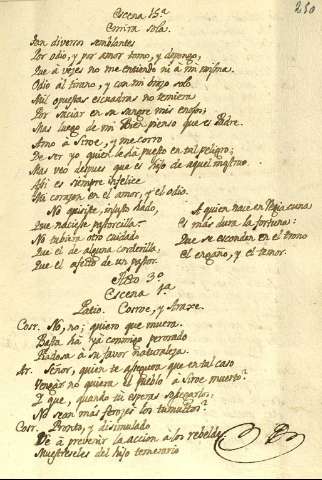 250
Escena 15.ª
Emira sola.
Son diversos semblantes
Por odio, y por amor tomo, y depongo,
Que à vezes no me entiendo ni à mi misma.
Odio al tirano, y con mi brazo solo
Mil opuestas escuadras no temiera
Por saciar en su sangre mis enojos;
Mas luego de mi Bien pienso que es Padre.
Amo à Siroe, y me corro
De ser yo quien le dà puesto en tal peligro;
Mas veo despues que es hijo de aquel mostruo.
Asi es siempre infelice
Mi corazon en el amor, y el odio.
No quisiste, injusto hado,
Que naciese pastorcilla:
No tubiera otro cuidado
Que el de alguna corderilla,
Que el afecto de un pastor.
A quien nace en Regia cuna
Es mas dura la fortuna:
Que se esconden en el trono
El engaño, y el temor.
Acto 3.º
Escena 1.ª
Patio. Cosroe, y Araxe.
Cosr. No, no; quiero que muera.
Basta hà ya conmigo perorado
Piadosa à su favor naturaleza.
Ar. Señor, quien te asegura que en tal caso
Vengar no quiera el pueblo à Siroe muerto?
Y que, quando tu esperas sosegarlos,
No sean mas ferozes los tumultos?
Cosr. Pronto, y disimulado
Ve à prevenir la accion à los rebeldes
Muestreseles del hijo temerario